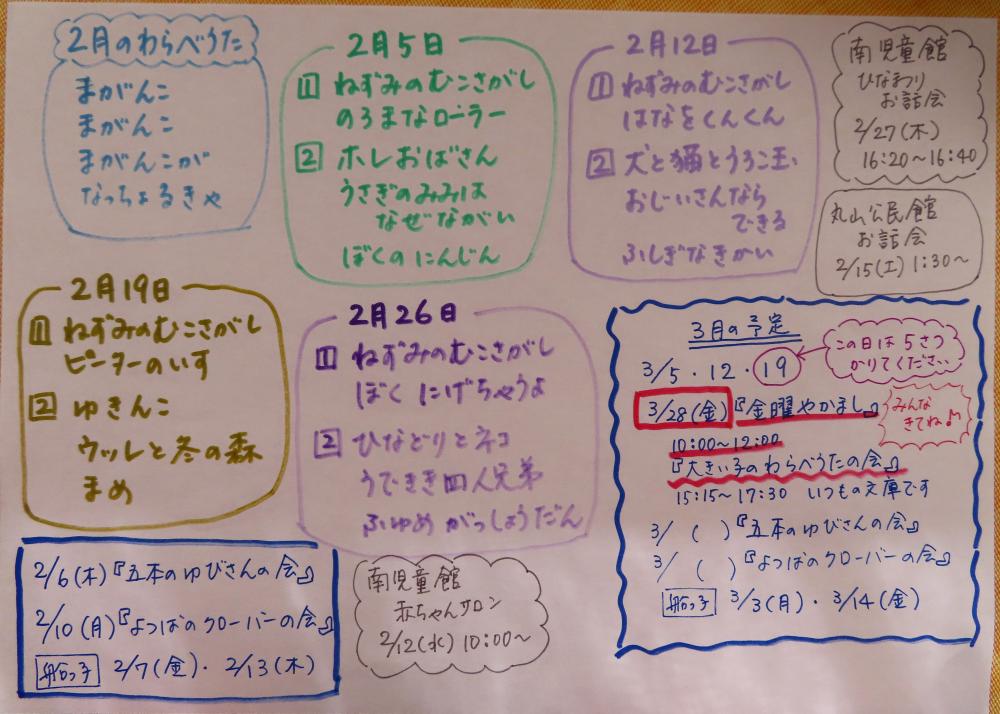 2月のわらべうた
まがんこ
まがんこ
まがんこが
なっちょるきゃ
2月5日
1 ねずみのむこさがし
のろまなローラー
2 ホレおばさん
うさぎのみみは
なぜながい
ぼくのにんじん
2月12日
1 ねずみのむこさがし
はなをくんくん
2 犬と猫とうろこ玉
おじいさんなら
できる
ふしぎなきかい
南児童館
ひなまつり
お話会
2/27(木)
16:20~16:40
丸山公民館
お話会
2/15(土) 1:30~
2月19日
1 ねずみのむこさがし
ピーターのいす
2 ゆきんこ
ウッレと冬の森
まめ
2月26日
1 ねずみのむこさがし
ぼく にげちゃうよ
2 ひなどりとネコ
うできき四人兄弟
ふゆめ がっしょうだん
3月の予定
3/5・12・19
この日は5さつ
かりてください
3/28(金)『金曜やかまし』
みんな
きてね♪
10:00~12:00
『大きい子のわらべうたの会』
15:15~17:30 いつもの文庫です
3/ ( )『五本のゆびさんの会』
3/ ( )『よつばのクローバーの会』
船っ子 3/3(月)・3/14(金)
2/6(木)『五本のゆびさんの会』
2/10(月)『よつばのクローバーの会』
船っ子 2/7(金)・2/13(木)
南児童館
赤ちゃんサロン
2/12(水) 10:00~